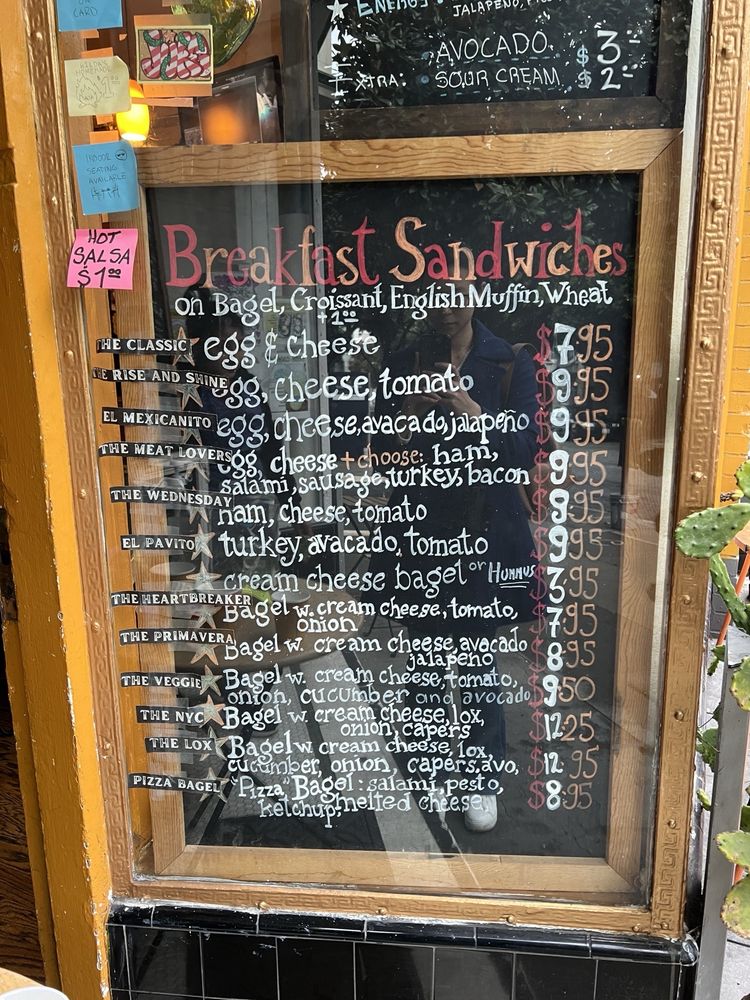 CARD
ENERGY:
JALAPEÑO,
AVOCADO $3-
EXTRA: SOUR CREAM $2-
HOMEMADE
INDOOR
SEATING
AVAILABLE
HOT
SALSA
$1.00
Breakfast Sandwiches
on Bagel, Croissant, English Muffin, Wheat
+1.00
THE CLASSIC egg & cheese $7.95
THE RISE AND SHINE egg, cheese, tomato $9.95
EL MEXICANITO egg, cheese, avacado, jalapeño $9.95
THE MEAT LOVERS egg, cheese + choose: ham, $9.95
salami, sausage, turkey, bacon
THE WEDNESDAY ham, cheese, tomato $9.95
EL PAVITO turkey, avacado, tomato $9.95
cream cheese bagel or HUMMUS $3.95
THE HEARTBREAKER Bagel w. cream cheese, tomato, $7.95
onion
THE PRIMAVERA Bagel w. cream cheese, avocado $8.95
jalapeño
THE VEGGIE Bagel w. cream cheese, tomato, $9.50
onion, cucumber and avocado
THE NYC Bagel w. cream cheese, lox, $12.25
onion, capers
THE LOX Bagel w. cream cheese, lox, $12.95
cucumber, onion, capers, avo,
PIZZA BAGEL "Pizza" Bagel: salami, pesto, $8.95
ketchup, melted cheese,